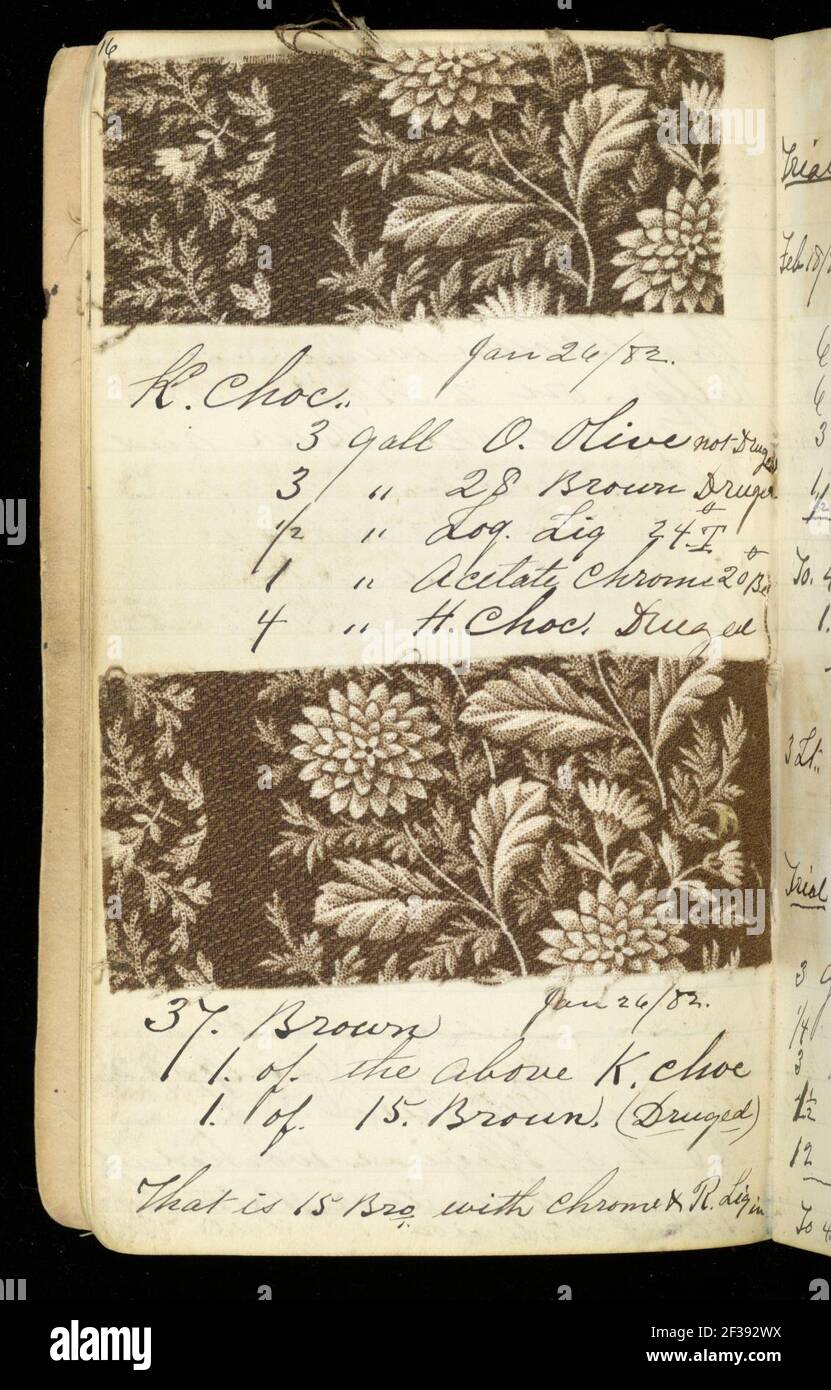 16
Jan 26/82.
K. Choc.
3 gall O. Olive not Druged
3 " 28 Brown Druged
1/2 " Log. Liq 24 T
1 " Acetate Chrome 20 Be
4 " H. Choc. Druged
37. Brown Jan 26/82.
1. of the above K. choc
1. of 15. Brown. (Druged)
That is 15 Bro. with chrome & R. Liq in
Trial
Feb 18/
6
6
3
1/2
To. 4
1.
3 Lt.
Trial
3 g
1/4
3
1 1/2
12
To 4
a
alamy
Image ID: 2F392WX
www.alamy.com